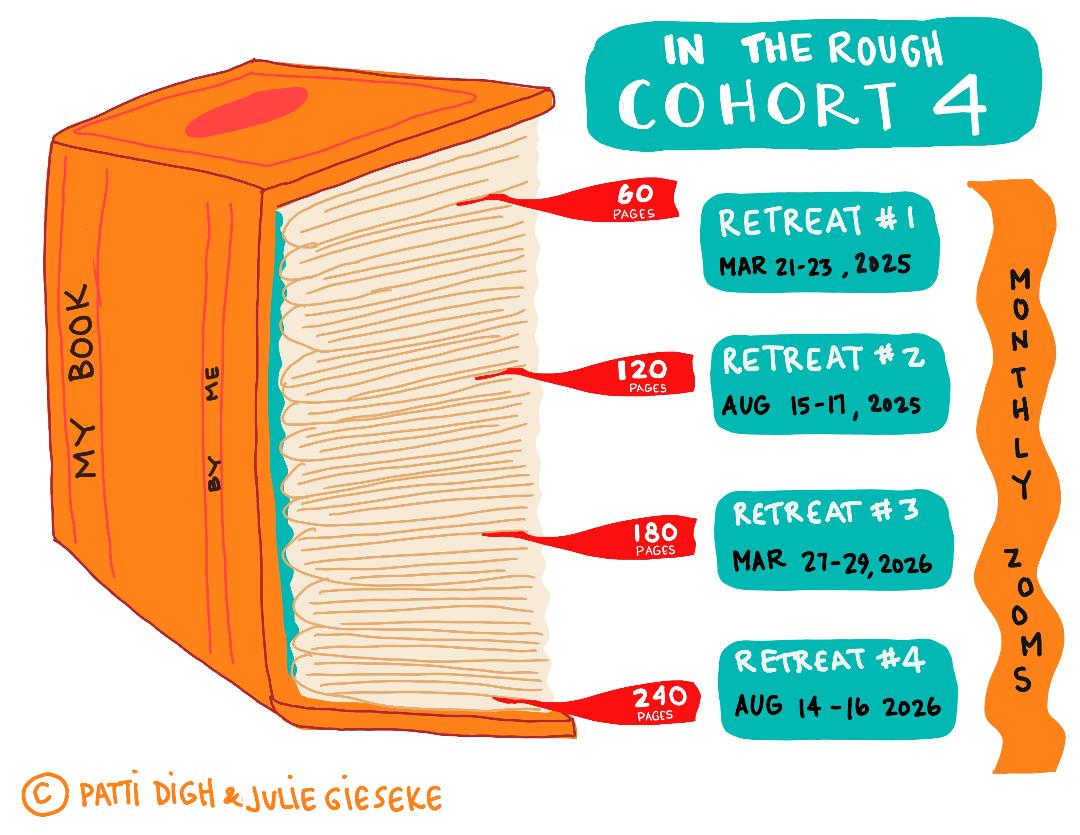 IN THE ROUGH
COHORT 4
MY BOOK
BY ME
60
PAGES
RETREAT #1
MAR 21-23, 2025
120
PAGES
RETREAT #2
AUG 15-17, 2025
180
PAGES
RETREAT #3
MAR 27-29, 2026
240
PAGES
RETREAT #4
AUG 14-16 2026
MONTHLY ZOOMS
© PATTI DIGH & JULIE GIESEKE